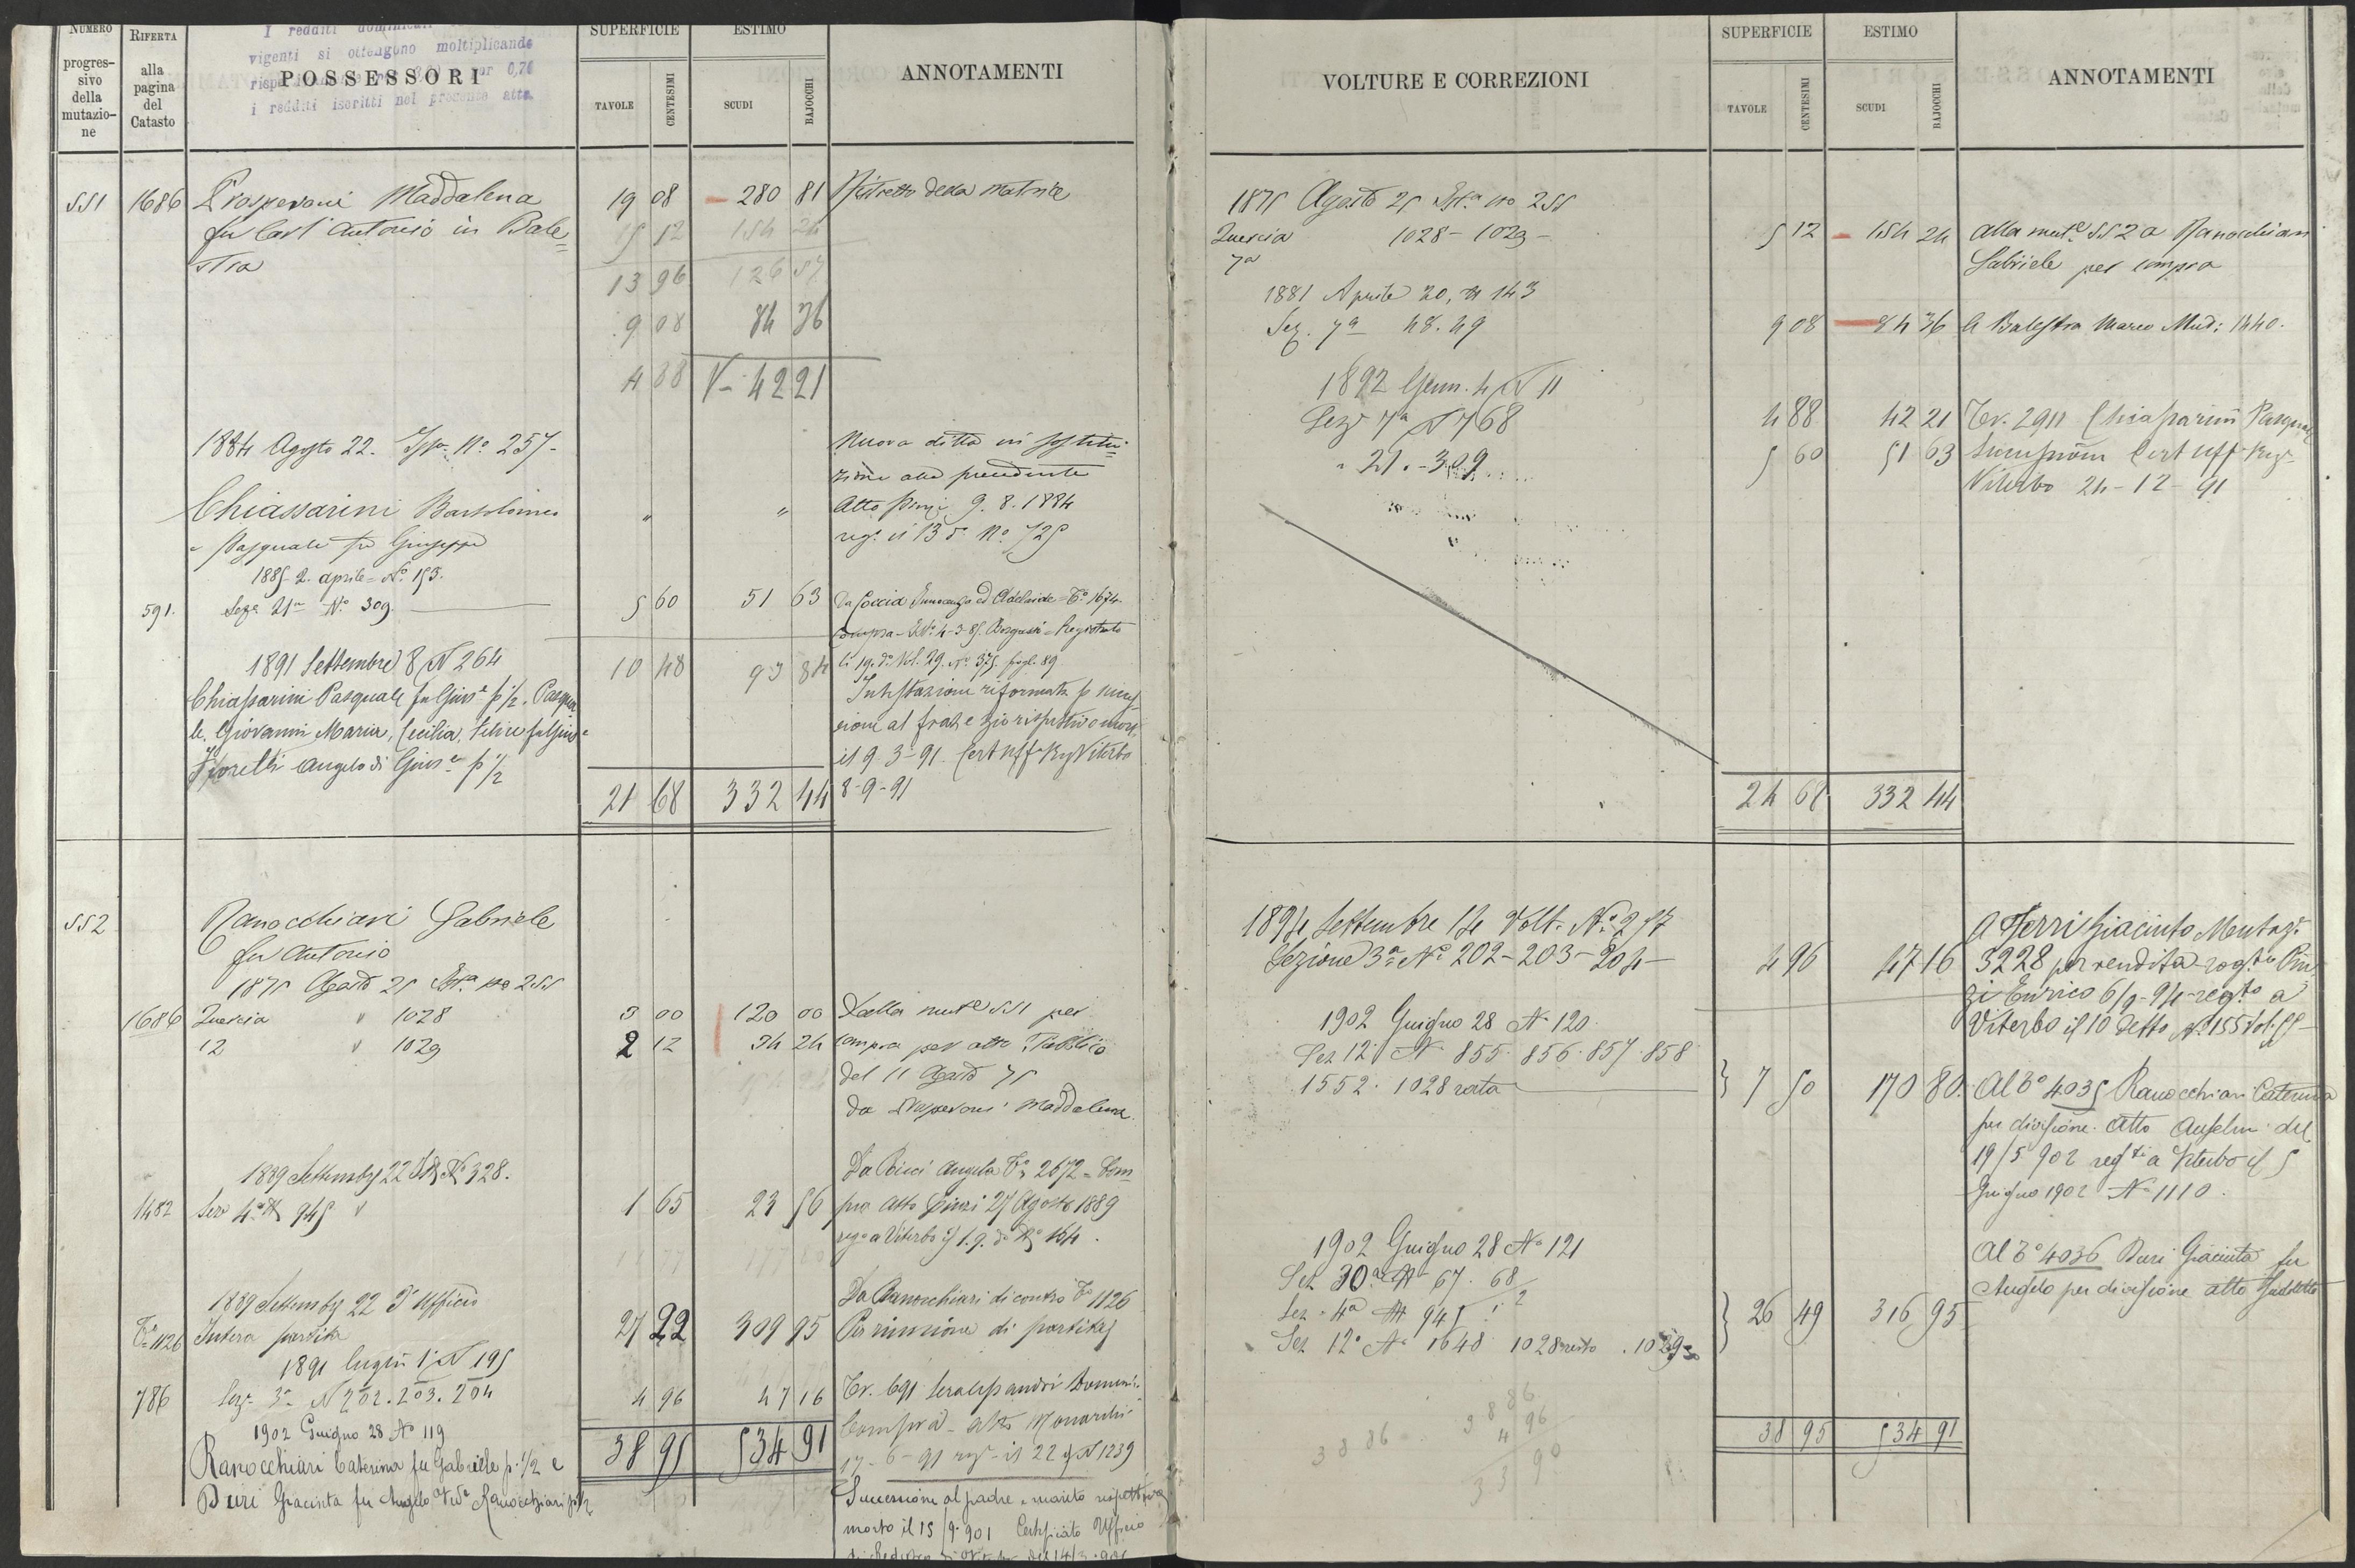 NUMERO progressivo della mutazione
RIFERTA alla pagina del Catasto
I redditi
vigenti si ottengono moltiplicando
i redditi iscritti nel presente atto
POSSESSORI
SUPERFICIE
TAVOLE
CENTESIMI
ESTIMO
SCUDI
BAJOCCHI
ANNOTAMENTI
551 1686 Prosperoni Maddalena 19 08 280 81 Ristretto della Matrice
fu Cast' Antonio in Bale= 5 12 154 24
stra
13 96 126 57
9 08 84 36
4 88 42 21
1884 Agosto 22. N° 257- Nuova ditta in sostitu=
zione alla precedente
Chiassarini Bartolomeo " " Atto Pinzi 9.8.1884
e Pasquale fu Giuseppe reg° il 13 d° N° 725
1885-2. aprile= N° 153.
591. Sez.e 21a N° 309. 5 60 51 63 Da Coccia ed Adelaide= T° 1674.
compra= 4-3-85. = Registrato
1891 Settembre 8 N 264 10 48 93 84 li 19. d° Vol. 29. N° 375. fogl. 89
Chiassarini Pasquale fu Gius.e p 1/2. Pasqua Intestazione riformata p succes
le, Giovanni Maria, Cecilia, Felice fu Gius.e
Fioretti Angelo di Gius.e p 1/2 il 9-3-91. Cert Uff Reg Viterbo
24 68 332 44 8-9-91
552 Ranocchiari Gabriele
fu Antonio
1875 Agosto 25 no 255
1686 Quercia v 1028 3 00 120 00 Dalla mut.e 551 per
12 v 1029 2 12 34 24 compra per atto Pubblico
del 11 Agosto 75
da Prosperoni Maddalena
1889 Settembre 22 N° 328. Da Ricci Angela T° 2672= Com
1482 Sez 4a N 945 v 1 65 23 56 pra Atto Pinzi 27 Agosto 1889
reg° a Viterbo il 1.9. d° N° 154.
1889 Settembre 22 D'Ufficio Da Ranocchiari di contro T° 1126
T° 1126 Intera partita 27 22 309 95 Per riunione di partite
1891 Luglio 1 N 195
786 Sez. 3a N 202. 203. 204 4 96 47 16 Tr. 691
1902 Giugno 28 N° 119 Compra - atto
Ranocchiari Caterina fu Gabriele p. 1/2 e 38 95 534 91 17-6-91 reg° il 22 d N 1239
Duri Giacinta fu Angelo Ved.a Ranocchiari p 1/2 Successione al padre e marito rispettivo
morto il 15/9.901 Certificato Ufficio
VOLTURE E CORREZIONI
SUPERFICIE
TAVOLE
CENTESIMI
ESTIMO
SCUDI
BAJOCCHI
ANNOTAMENTI
1875 Agosto 25 no 255
Quercia 1028-1029- 5 12 154 24 alla mut.e 552 a Ranocchiari
7a Gabriele per compra
1881 Aprile 20, N 143
Sez. 7a 48.49 9 08 84 36 A Balestra Marco Mut: 1440.
1892 Genn. 4 N 11
Sez 7a N 768 4 88 42 21 Tr. 2911 Chiassarini Pasquale
" 21. - 309 5 60 51 63 Successioni Cert Uff Reg
Viterbo 24-12-91
24 68 332 44
1894 Settembre 14 Volt. N° 257 A Ferri Giacinto Mutaz.
Sezione 3a N° 202-203-204- 4 96 47 16 3228 per vendita rog.to Pin
zi Enrico 6/9-94-reg.to a
1902 Giugno 28 N. 120. Viterbo il 10 detto N° 155 Vol. 55-
Sez 12a N 855. 856. 857. 858
1552. 1028 rata 7 50 170 80. Al T° 4035 Ranocchiari Caterina
per divisione. Atto Anselmi del
19/5 902 reg.to a Viterbo il 5
Giugno 1902 N° 1110.
1902 Giugno 28 N° 121
Sez 30a N 67. 68/2 Al T° 4036 Duri Giacinta fu
Sez. 4a N 945 Angelo per divisione atto suddetto
Sez 12a N. 1648 1028 resto. 1029 26 49 316 95
38 86 38 86
4 96
33 90
38 95 534 91